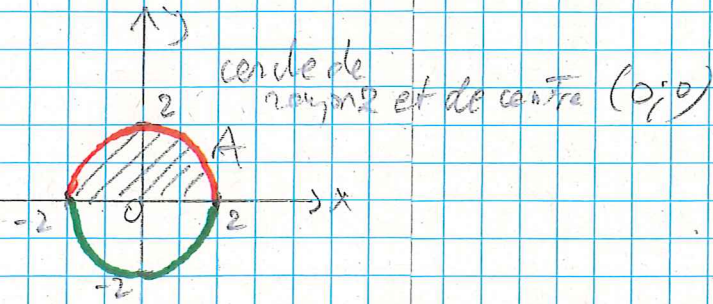 y
cercle de
2 rayon 2 et de centre (0;0)
A
-2 0 2 x
-2